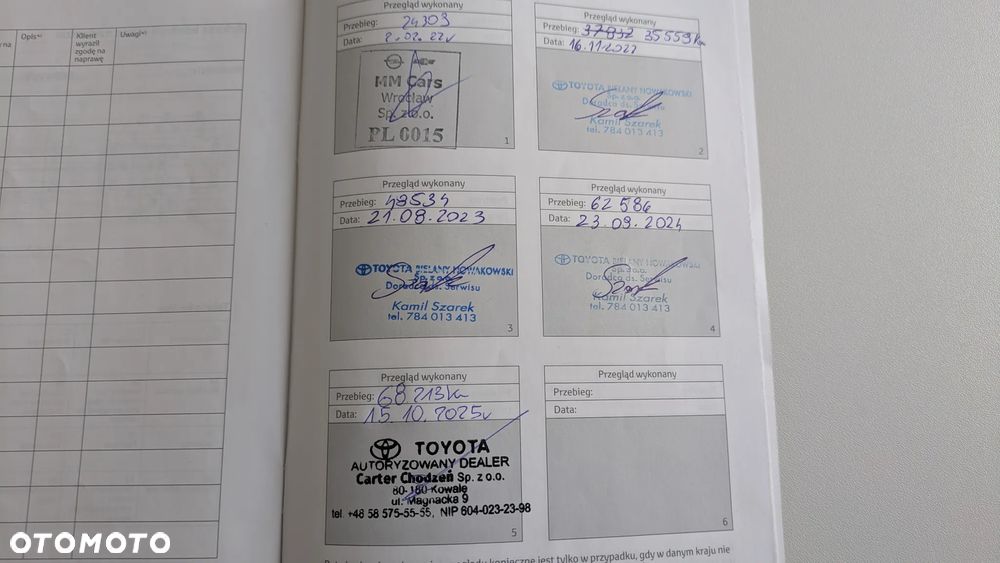 na
Opis*⁾
Klient
wyraził
zgodę na
naprawę
Uwagi*⁾
Przegląd wykonany
Przebieg: 24309
Data: 2.02.22r
MM Cars
Wrocław
Sp. z o.o.
PL 0015
1
Przegląd wykonany
Przebieg: 37832 35559km
Data: 16.11.2022
TOYOTA BIELANY NOWAKOWSKI
Sp. z o.o.
Doradca ds. Serwisu
Kamil Szarek
tel. 784 013 413
2
Przegląd wykonany
Przebieg: 48534
Data: 21.08.2023
TOYOTA BIELANY NOWAKOWSKI
Sp. z o.o.
Doradca ds. Serwisu
Kamil Szarek
tel. 784 013 413
3
Przegląd wykonany
Przebieg: 62 586
Data: 23.09.2024
TOYOTA BIELANY NOWAKOWSKI
Sp. z o.o.
Doradca ds. Serwisu
Kamil Szarek
tel. 784 013 413
4
Przegląd wykonany
Przebieg: 68 213km
Data: 15.10.2025r
TOYOTA
AUTORYZOWANY DEALER
Carter Chodzeń Sp. z o.o.
80-180 Kowale
ul. Magnacka 9
tel. +48 58 575-55-55, NIP 604-023-23-98
5
Przegląd wykonany
Przebieg:
Data:
6
konieczne jest tylko w przypadku, gdy w danym kraju nie
OTOMOTO